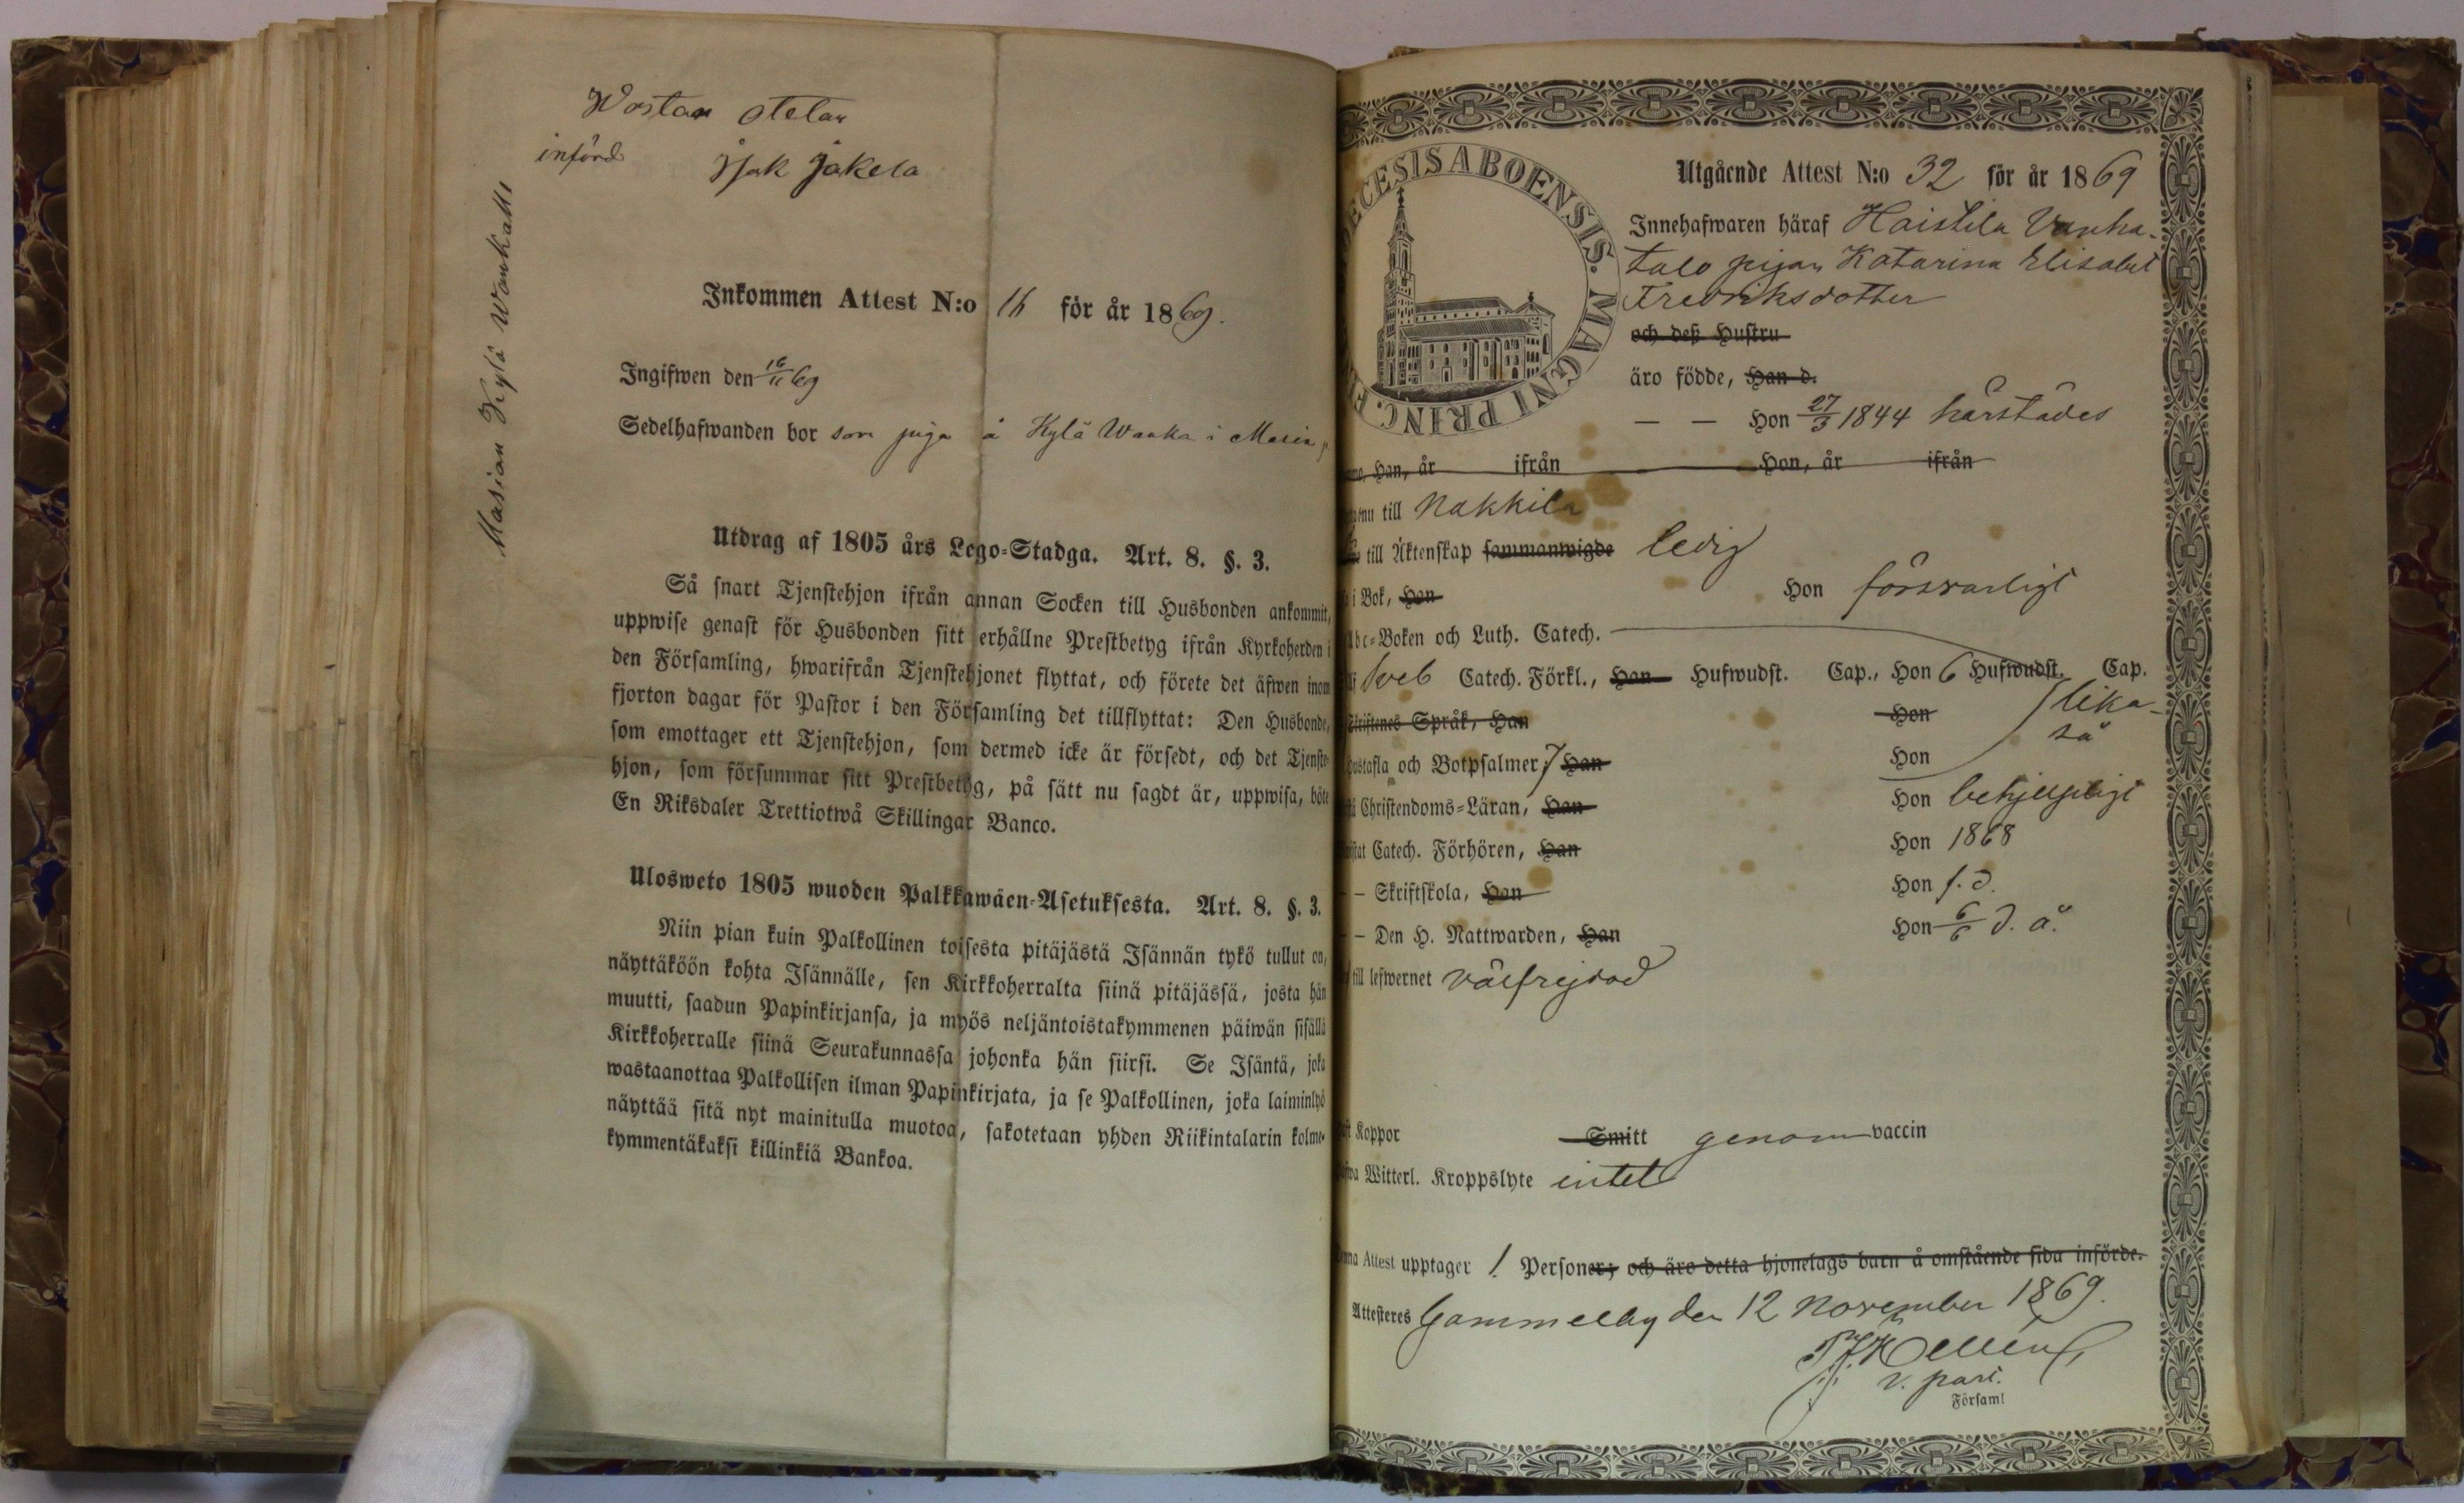 Wostan otetan
införd Isak Jakela
Masian Kylä Wankalle
Inkommen Attest N:o 16 för år 1869.
Ingifwen den 16/11 69
Sedelhafwanden bor som piga å Kylä Wanka i Masia
Utdrag af 1805 års Lego-Stadga. Art. 8. §. 3.
Så snart Tjenstehjon ifrån annan Socken till Husbonden ankommit,
uppwise genast för Husbonden sitt erhållne Prestbetyg ifrån Kyrkoherden i
den Församling, hwarifrån Tjenstehjonet flyttat, och förete det äfwen inom
fjorton dagar för Pastor i den Församling det tillflyttat: Den Husbonde,
som emottager ett Tjenstehjon, som dermed icke är försedt, och det Tjenste-
hjon, som försummar sitt Prestbetyg, på sätt nu sagdt är, uppwisa, böte
En Riksdaler Trettiotwå Skillingar Banco.
Ulosweto 1805 wuoden Palkkawäen-Asetuksesta. Art. 8. §. 3.
Niin pian kuin Palkollinen toisesta pitäjästä Isännän tykö tullut on,
näyttäköön kohta Isännälle, sen Kirkkoherralta siinä pitäjässä, josta hän
muutti, saadun Papinkirjansa, ja myös neljäntoistakymmenen päiwän sisällä
Kirkkoherralle siinä Seurakunnassa johonka hän siirsi. Se Isäntä, joka
wastaanottaa Palkollisen ilman Papinkirjata, ja se Palkollinen, joka laiminlyö
näyttää sitä nyt mainitulla muotoa, sakotetaan yhden Riikintalarin kolme-
kymmentäkaksi killinkiä Bankoa.
ECESIS ABOENSIS. MAGNI PRINC. F
Utgående Attest N:o 32 för år 1869
Innehafwaren häraf Haistila Vanha-
talo pigan Katarina Elisabet
Fredriksdotter
och deß Hustru
äro födde, Han d.
— — Hon 27/3 1844 härstädes
Han, år ifrån Hon, år ifrån
nu till Nakkila
till Äktenskap sammanwigde ledig
i Bok, Han Hon försvarligt
Abc-Boken och Luth. Catech.
Sveb Catech. Förkl., Han Hufwudst. Cap., Hon 6 Hufwudst. Cap.
Skriftenes Språk, Han Hon lika-
så
Hustafla och Botpsalmer, 7 Han Hon
Christendoms-Läran, Han Hon behjelpligt
Catech. Förhören, Han Hon 1868
— Skriftskola, Han Hon s. d.
— Den H. Nattwarden, Han Hon 6/6 d. å.
till lefwernet välfrejdad
Koppor Smitt genom vaccin
Witterl. Kroppslyte intet
Attest upptager 1. Personer; och äro detta hjonelags barn å omstående sida införde.
Attesteres Gammelby den 12 November 1869.
v. past.
Församl